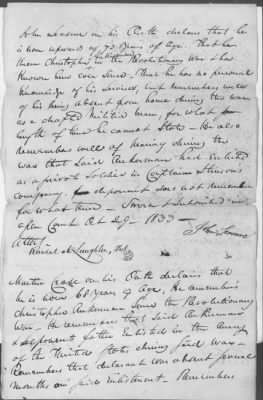 John on his Oath declares that he
is now upwards of 73 Years of Age. That he
Knew Christopher Ankerman in the Revolutionary War & has
Known him ever Since. That he has no personal
Knowledge of his Services, but remembers well
of his being absent from home during the war
as a drafted militia man, for what
length of time he cannot State — He also
remembers well of hearing during the
war that Said Ankerman had Enlisted
as a private Soldier in Captain Stinsons
company. deponent does not remember
for what time — Sworn & Subscribed in
open Court Oct 29 - 1833 —
Attest John
McLaughlin,
Martin on his Oath declares that
he is now 68 Years of Age, He remembers
Christopher Ankerman Since the Revolutionary
War — He remembers that Said Ankerman
& deponents father Enlisted in the Army
of the United States during Said War —
Remembers that declarant was absent Some
months on Said Enlistment — Remembers